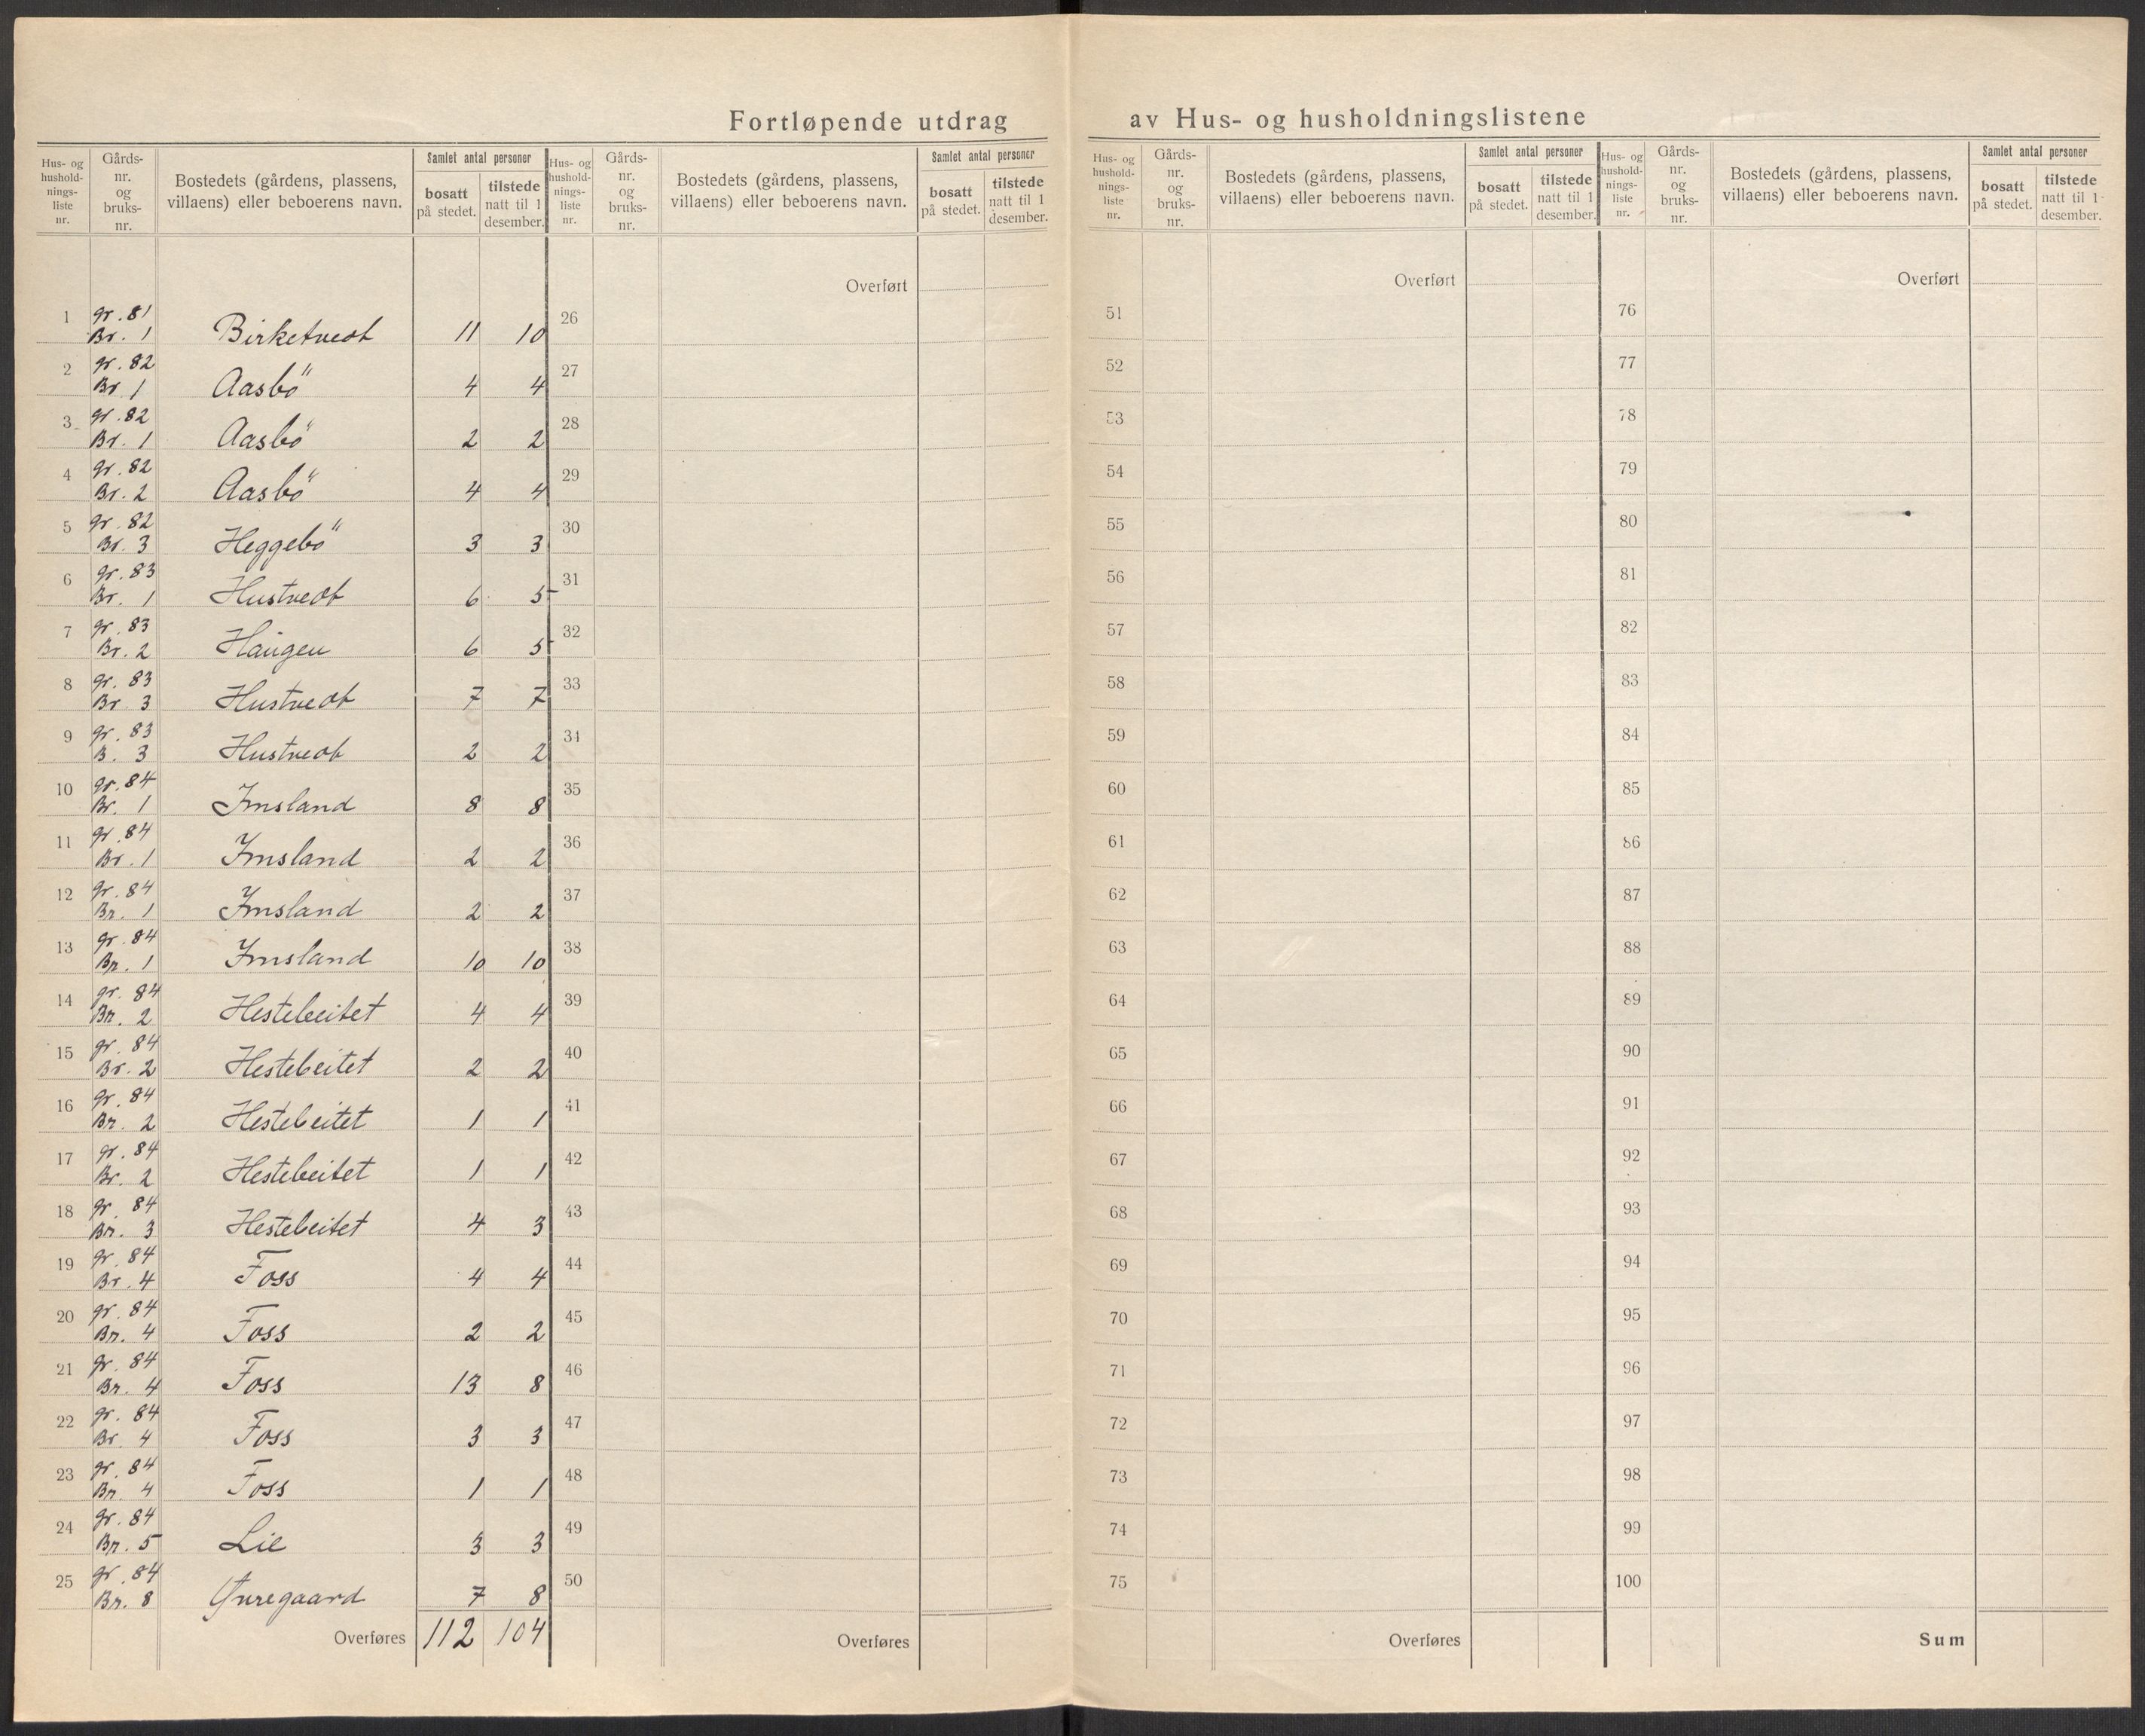 Fortløpende utdrag av Hus- og husholdningslistene
Hus- og husholdnings-liste nr. | Gårds-nr. og bruks-nr. | Bostedets (gårdens, plassens, villaens) eller beboerens navn. | Samlet antal personer | bosatt på stedet. | tilstede natt til 1 desember.
Hus- og husholdnings-liste nr. | Gårds-nr. og bruks-nr. | Bostedets (gårdens, plassens, villaens) eller beboerens navn. | Samlet antal personer | bosatt på stedet. | tilstede natt til 1 desember.
Hus- og husholdnings-liste nr. | Gårds-nr. og bruks-nr. | Bostedets (gårdens, plassens, villaens) eller beboerens navn. | Samlet antal personer | bosatt på stedet. | tilstede natt til 1 desember.
Hus- og husholdnings-liste nr. | Gårds-nr. og bruks-nr. | Bostedets (gårdens, plassens, villaens) eller beboerens navn. | Samlet antal personer | bosatt på stedet. | tilstede natt til 1 desember.
Overført Overført Overført
1 gr. 81 Br. 1 Birketvedt 11 10 26 51 76
2 gr. 82 Br 1 Aasbö 4 4 27 52 77
3 gr. 82 Br. 1 Aasbö 2 2 28 53 78
4 gr. 82 Br. 2 Aasbö 4 4 29 54 79
5 gr. 82 Br. 3 Heggebö 3 3 30 55 80
6 gr. 83 Br. 1 Hustvedt 6 5 31 56 81
7 gr. 83 Br. 2 Haugen 6 5 32 57 82
8 gr. 83 Br 3 Hustvedt 7 7 33 58 83
9 gr. 83 B. 3 Hustvedt 2 2 34 59 84
10 gr. 84 Br. 1 Imsland 8 8 35 60 85
11 gr. 84 Br. 1 Imsland 2 2 36 61 86
12 gr. 84 Br. 1 Imsland 2 2 37 62 87
13 gr. 84 Br. 1 Imsland 10 10 38 63 88
14 gr. 84 Br. 2 Hestebeitet 4 4 39 64 89
15 gr. 84 Br. 2 Hestebeitet 2 2 40 65 90
16 gr. 84 Br. 2 Hestebeitet 1 1 41 66 91
17 gr. 84 Br. 2 Hestebeitet 1 1 42 67 92
18 gr. 84 Br. 3 Hestebeitet 4 3 43 68 93
19 gr. 84 Br. 4 Foss 4 4 44 69 94
20 gr. 84 Br. 4 Foss 2 2 45 70 95
21 gr. 84 Br. 4 Foss 13 8 46 71 96
22 gr. 84 Br. 4 Foss 3 3 47 72 97
23 gr. 84 Br. 4 Foss 1 1 48 73 98
24 gr. 84 Br. 5 Lie 3 3 49 74 99
25 gr. 84 Br. 8 7 8 50 75 100
Overføres 112 104 Overføres Overføres Sum